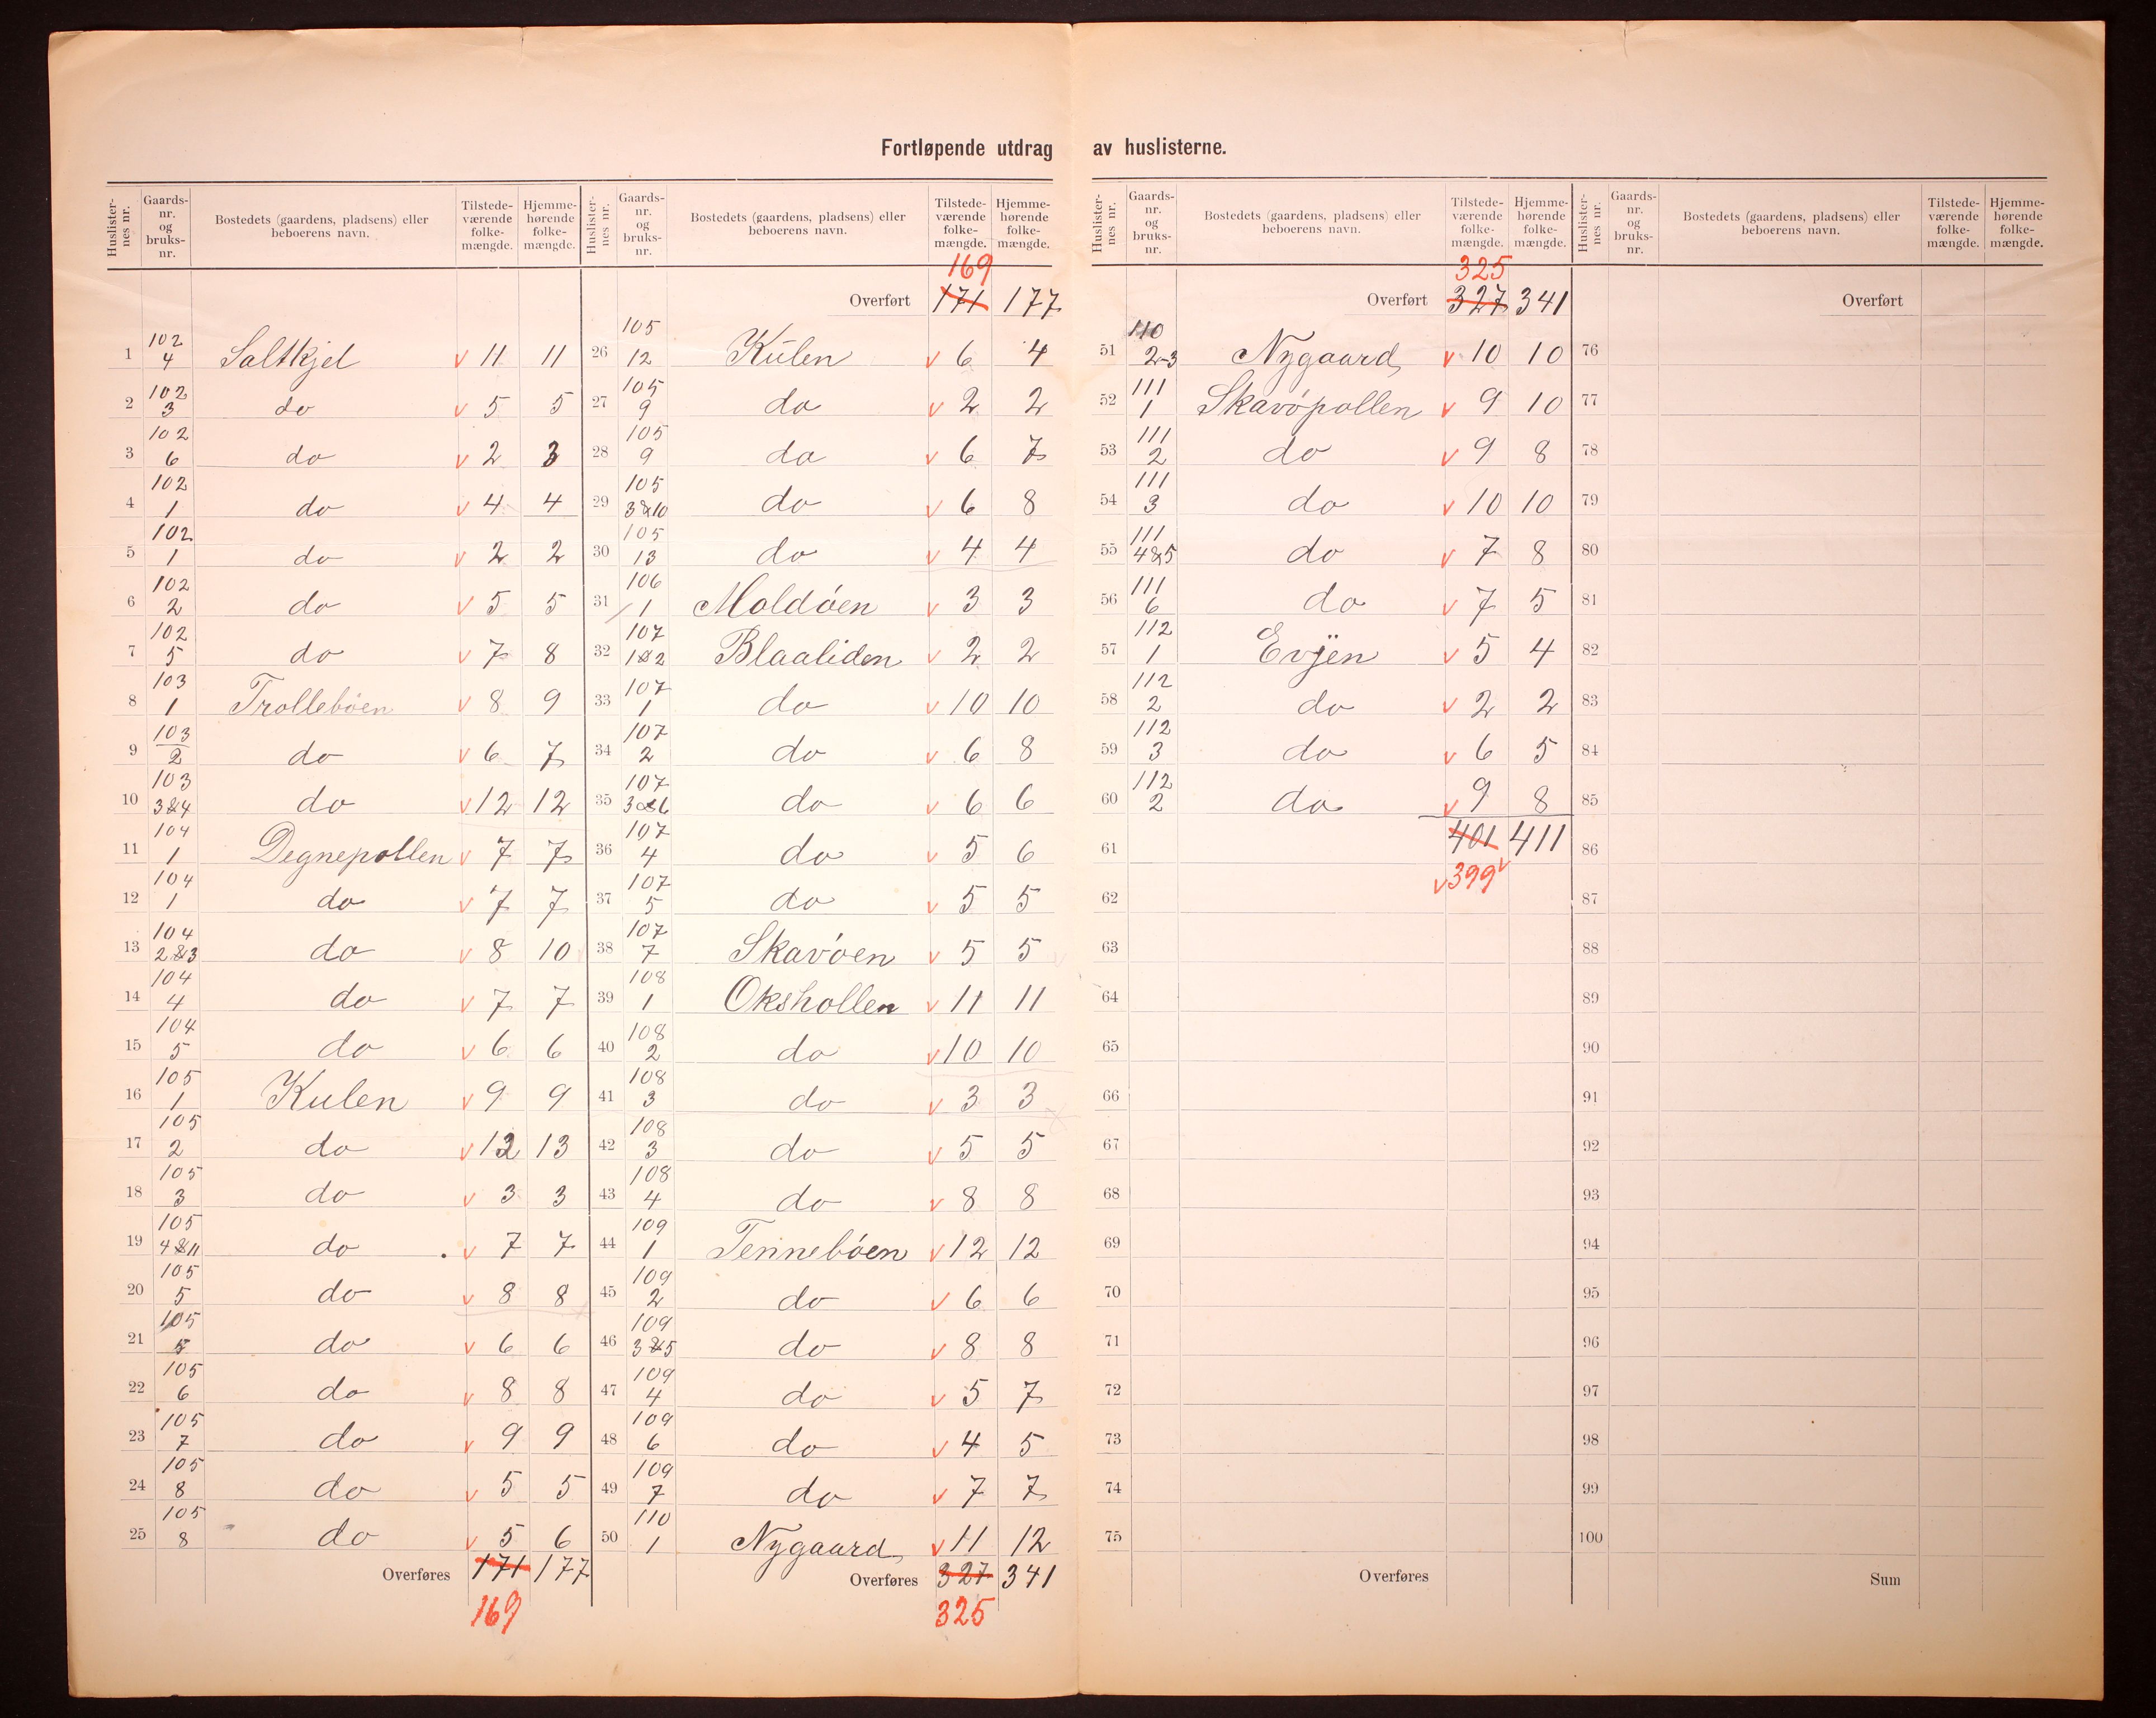 Fortløpende utdrag av huslisterne.
Huslisternes nr. | Gaards-nr. og bruks-nr. | Bostedets (gaardens, pladsens) eller beboerens navn. | Tilstedeværende folkemængde. | Hjemmehørende folkemængde.
1 102 4 Saltkjel v 11 11
2 102 3 do v 5 5
3 102 6 do v 2 3
4 102 1 do v 4 4
5 102 1 do v 2 2
6 102 2 do v 5 5
7 102 5 do v 7 8
8 103 1 Trollebøen v 8 9
9 103 2 do v 6 7
10 103 3&4 do v 12 12
11 104 1 Degnepollen v 7 7
12 104 1 do v 7 7
13 104 2&3 do v 8 10
14 104 4 do v 7 7
15 104 5 do v 6 6
16 105 1 Kulen v 9 9
17 105 2 do v 12 13
18 105 3 do v 3 3
19 105 4&11 do v 7 7
20 105 5 do v 8 8
21 105 5 do v 6 6
22 105 6 do v 8 8
23 105 7 do v 9 9
24 105 8 do v 5 5
25 105 8 do v 5 6
Overføres 171 177
169
Huslisternes nr. | Gaards-nr. og bruks-nr. | Bostedets (gaardens, pladsens) eller beboerens navn. | Tilstedeværende folkemængde. | Hjemmehørende folkemængde.
169
Overført 171 177
26 105 12 Kŭlen v 6 4
27 105 9 do v 2 2
28 105 9 do v 6 7
29 105 3&10 do v 6 8
30 105 13 do v 4 4
31 106 1 Moldøen v 3 3
32 107 1&2 Blaaliden v 2 2
33 107 1 do v 10 10
34 107 2 do v 6 8
35 107 3&6 do v 6 6
36 107 4 do v 5 6
37 107 5 do v 5 5
38 107 7 Skavøen v 5 5
39 108 1 Okshollen v 11 11
40 108 2 do v 10 10
41 108 3 do v 3 3
42 108 3 do v 5 5
43 108 4 do v 8 8
44 109 1 Tennebøen v 12 12
45 109 2 do v 6 6
46 109 3&5 do v 8 8
47 109 4 do v 5 7
48 109 6 do v 4 5
49 109 7 do v 7 7
50 110 1 Nygaard v 11 12
Overføres 327 341
325
Huslisternes nr. | Gaards-nr. og bruks-nr. | Bostedets (gaardens, pladsens) eller beboerens navn. | Tilstedeværende folkemængde. | Hjemmehørende folkemængde.
325
Overført 327 341
51 110 2-3 Nygaard v 10 10
52 111 1 Skavøpollen v 9 10
53 111 2 do v 9 8
54 111 3 do v 10 10
55 111 4&5 do v 7 8
56 111 6 do v 7 5
57 112 1 Evjen v 5 4
58 112 2 do v 2 2
59 112 3 do v 6 5
60 112 2 do v 9 8
61 401 411
62 v 399 v
63
64
65
66
67
68
69
70
71
72
73
74
75
Overføres
Huslisternes nr. | Gaards-nr. og bruks-nr. | Bostedets (gaardens, pladsens) eller beboerens navn. | Tilstedeværende folkemængde. | Hjemmehørende folkemængde.
Overført
76
77
78
79
80
81
82
83
84
85
86
87
88
89
90
91
92
93
94
95
96
97
98
99
100
Sum